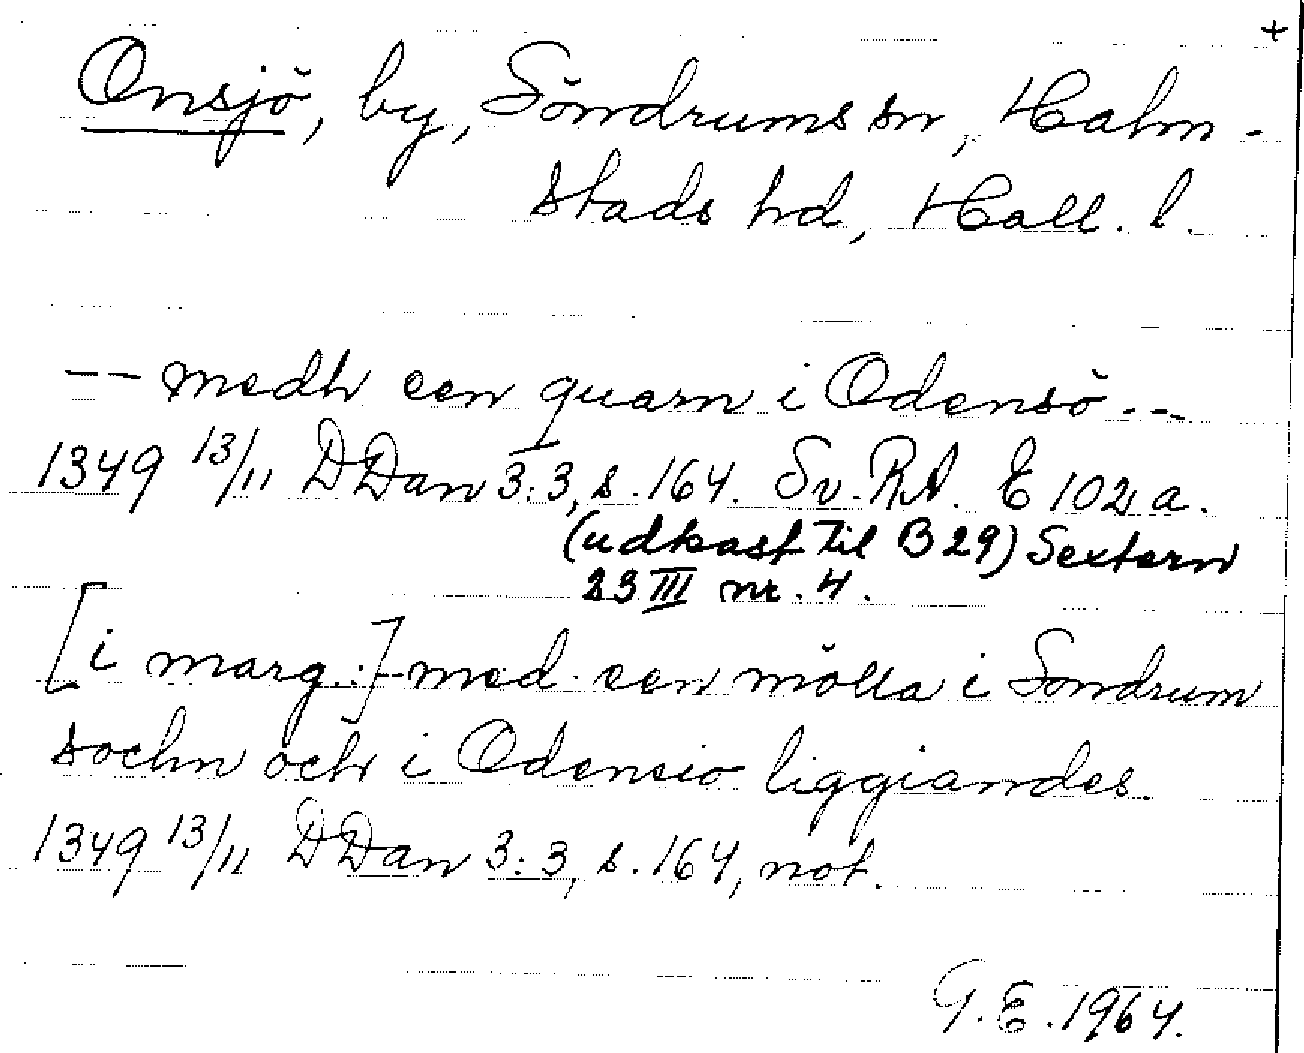 +
Onsjö, by, Söndrums sn, Halm-
stads hd, Hall. l.
-- medh een quarn i Odensö --
1349 13/11 DDan 3:3, s. 164. Sv. RA. E 102 a.
(udkast til B 29) Sextern
23 III nr. 4.
[i marg.:] med een mölla i Sondrum
sochn och i Odensio liggiandes
1349 13/11 DDan 3:3, s. 164, not.
G.E. 1964.